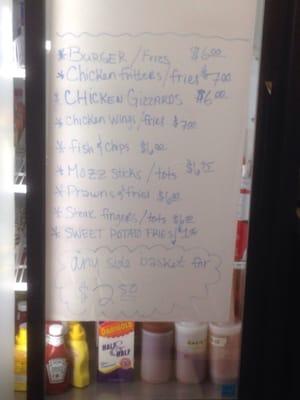 * BURGER / Fries $6.00
* Chicken fritters / fries $7.00
* CHICKEN GIZZARDS $6.00
* Chicken wings / fries $7.00
* fish & chips $6.00
* Mozz sticks / tots
* Prawns & fries $6.00
* Steak fingers / tots
* SWEET POTATO FRIES
any side basket for
$2.50
DARIGOLD
HALF & HALF